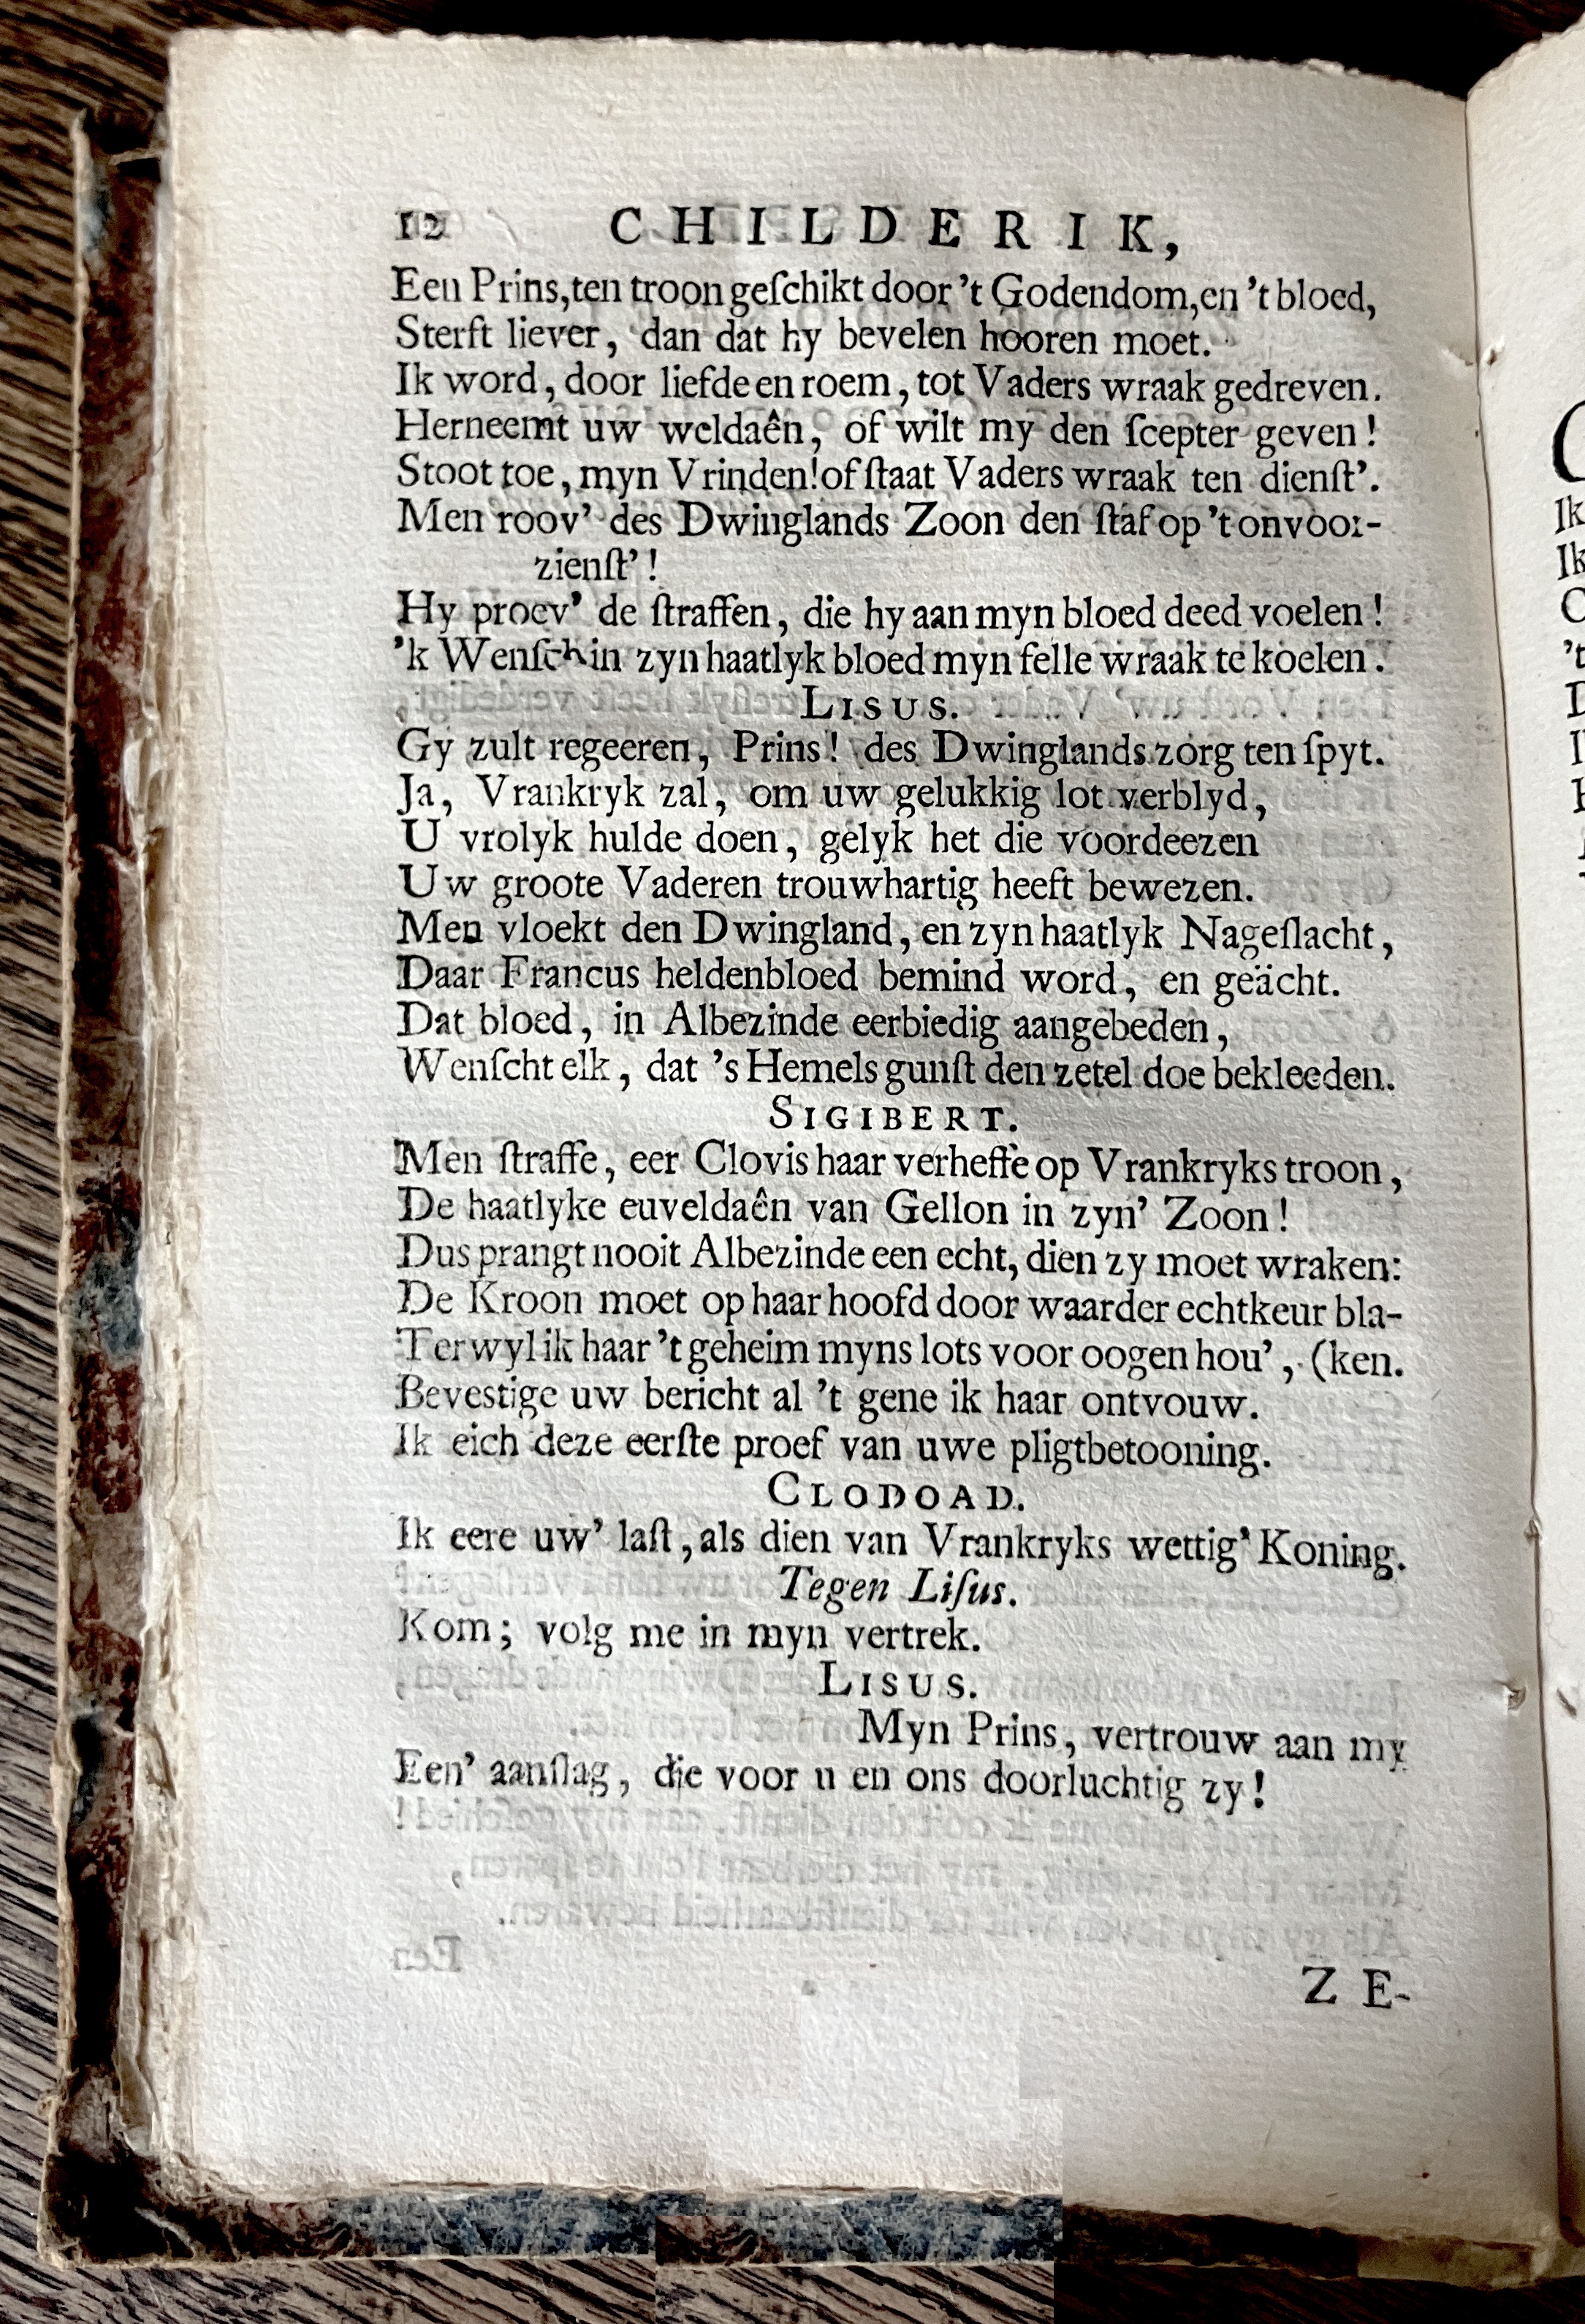 12 CHILDERIK,
Een Prins, ten troon geſchikt door 't Godendom, en 't bloed,
Sterft liever, dan dat hy bevelen hooren moet.
Ik word, door liefde en roem, tot Vaders wraak gedreven.
Herneemt uw weldaên, of wilt my den ſcepter geven!
Stoot toe, myn Vrinden! of ſtaat Vaders wraak ten dienſt'.
Men roov' des Dwinglands Zoon den ſtaf op 't onvoor-
zienſt'!
Hy proev' de ſtraffen, die hy aan myn bloed deed voelen!
'k Wenſch in zyn haatlyk bloed myn felle wraak te koelen.
LISUS.
Gy zult regeeren, Prins! des Dwinglands zorg ten ſpyt.
Ja, Vrankryk zal, om uw gelukkig lot verblyd,
U vrolyk hulde doen, gelyk het die voordeezen
Uw groote Vaderen trouwhartig heeft bewezen.
Men vloekt den Dwingland, en zyn haatlyk Nageſlacht,
Daar Francus heldenbloed bemind word, en geächt.
Dat bloed, in Albezinde eerbiedig aangebeden,
Wenſcht elk, dat 's Hemels gunſt den zetel doe bekleeden.
SIGIBERT.
Men ſtraffe, eer Clovis haar verheffe op Vrankryks troon,
De haatlyke euveldaên van Gellon in zyn' Zoon!
Dus prangt nooit Albezinde een echt, dien zy moet wraken:
De Kroon moet op haar hoofd door waarder echtkeur bla-
Terwyl ik haar 't geheim myns lots voor oogen hou', (ken.
Bevestige uw bericht al 't gene ik haar ontvouw.
Ik eich deze eerſte proef van uwe pligtbetooning.
CLODOAD.
Ik eere uw' laſt, als dien van Vrankryks wettig' Koning.
Tegen Liſus.
Kom; volg me in myn vertrek.
LISUS.
Myn Prins, vertrouw aan my
Een' aanſlag, die voor u en ons doorluchtig zy!
ZE-
Ik
Ik